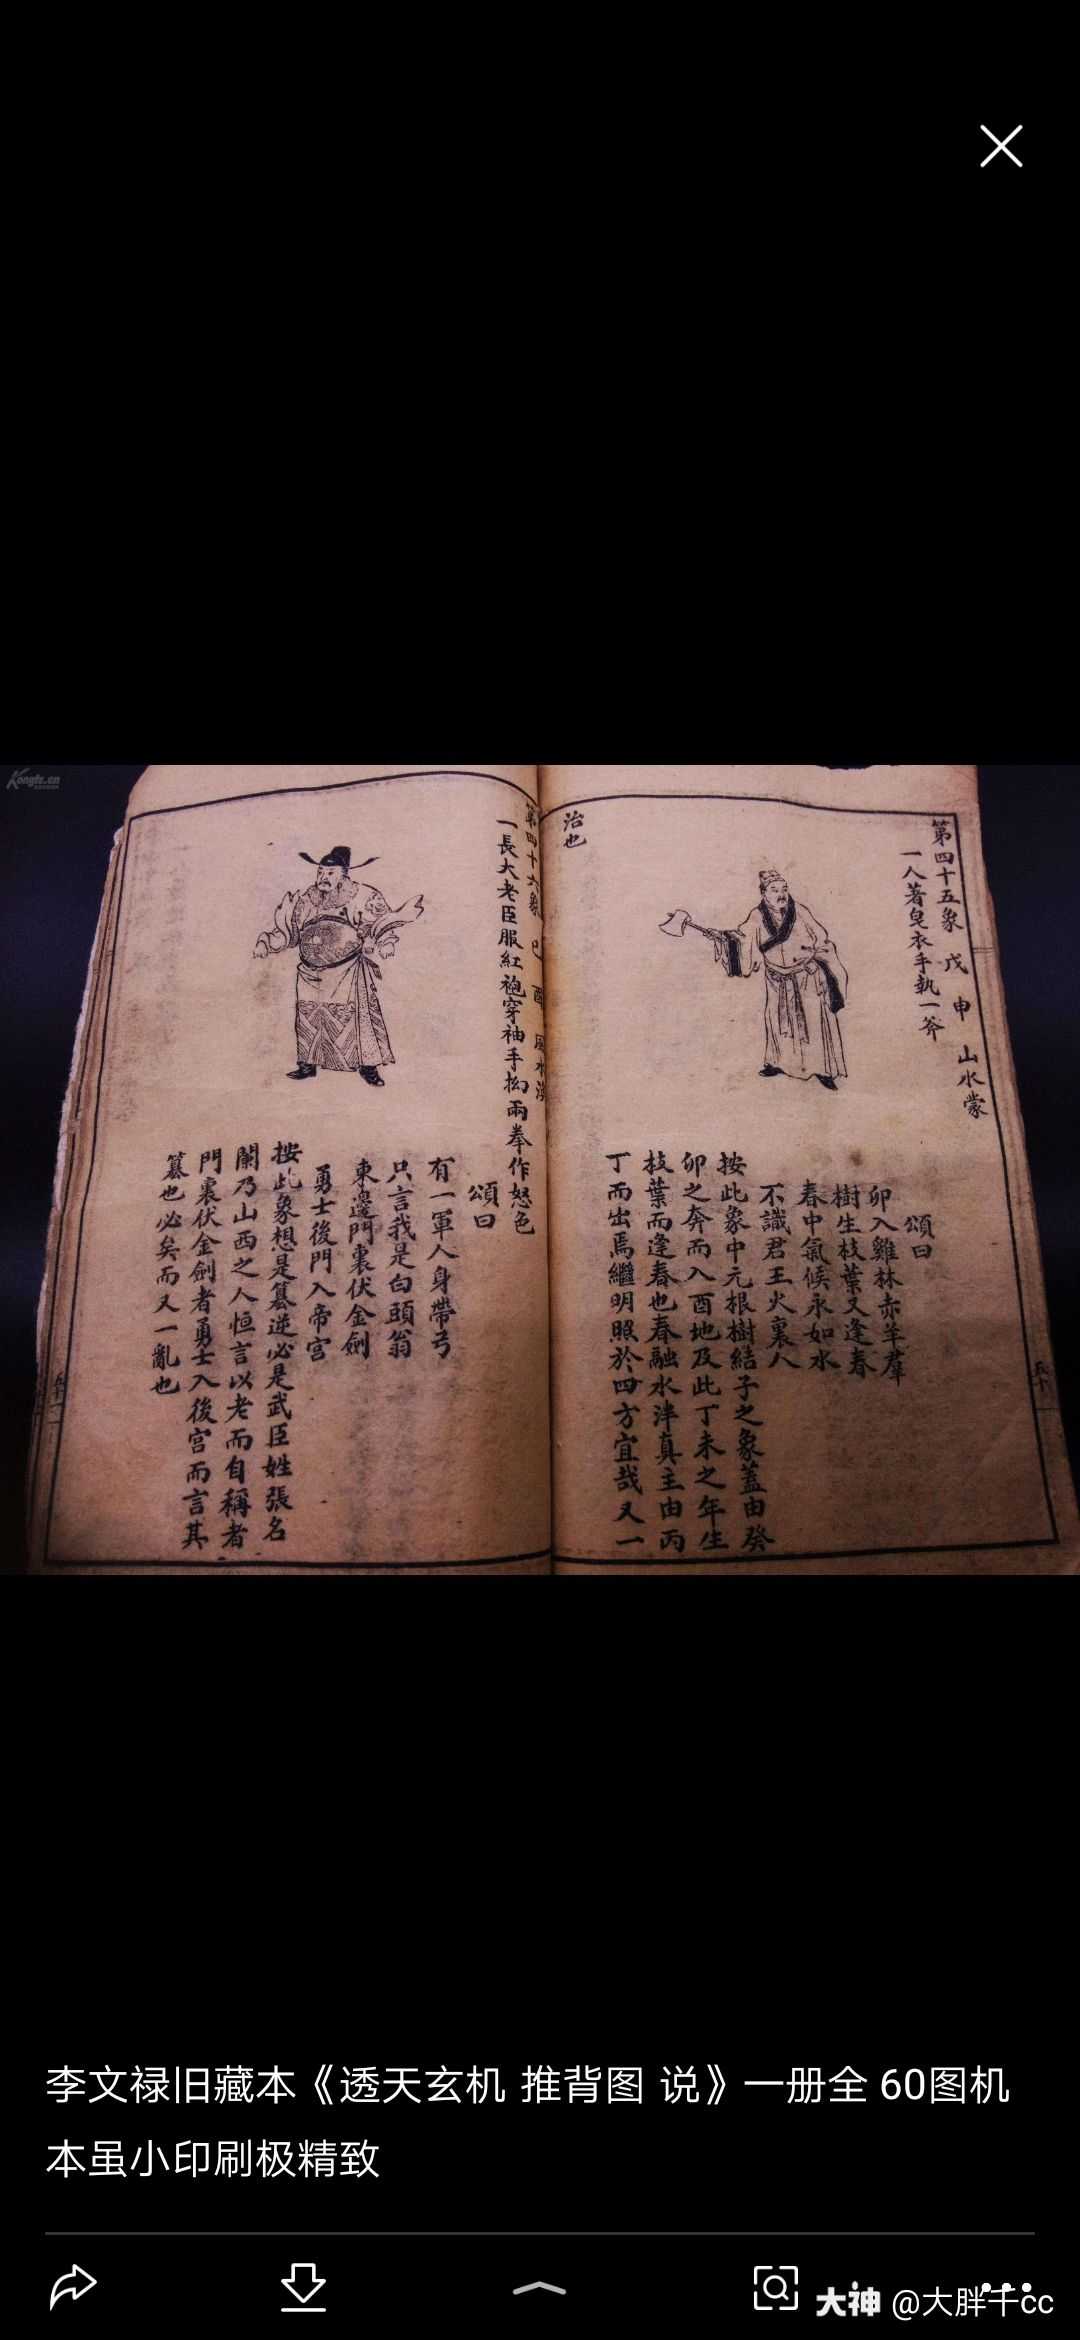 Kongfz.cn
第四十五象 戊 申 山水蒙
一人著皂衣手執一斧
頌曰
卯入雞林赤羊羣
樹生枝葉又逢春
春中氣候永如水
不識君王火裏人
按此象中元根樹結子之象蓋由癸
卯之奔而入酉地及此丁未之年生
枝葉而逢春也春融水泮真主由丙
丁而出焉繼明照於四方宜哉又一
治也
第四十六象 巳 酉 風水渙
一長大老臣服紅袍穿袖手拗兩拳作怒色
頌曰
有一軍人身帶弓
只言我是白頭翁
東邊門裏伏金劍
勇士後門入帝宮
按此象想是篡逆必是武臣姓張名
闌乃山西之人恒言以老而自稱者
門裏伏金劍者勇士入後宮而言其
篡也必矣而又一亂也
李文禄旧藏本《透天玄机 推背图 说》一册全 60图机
本虽小印刷极精致
大神 @大胖千cc